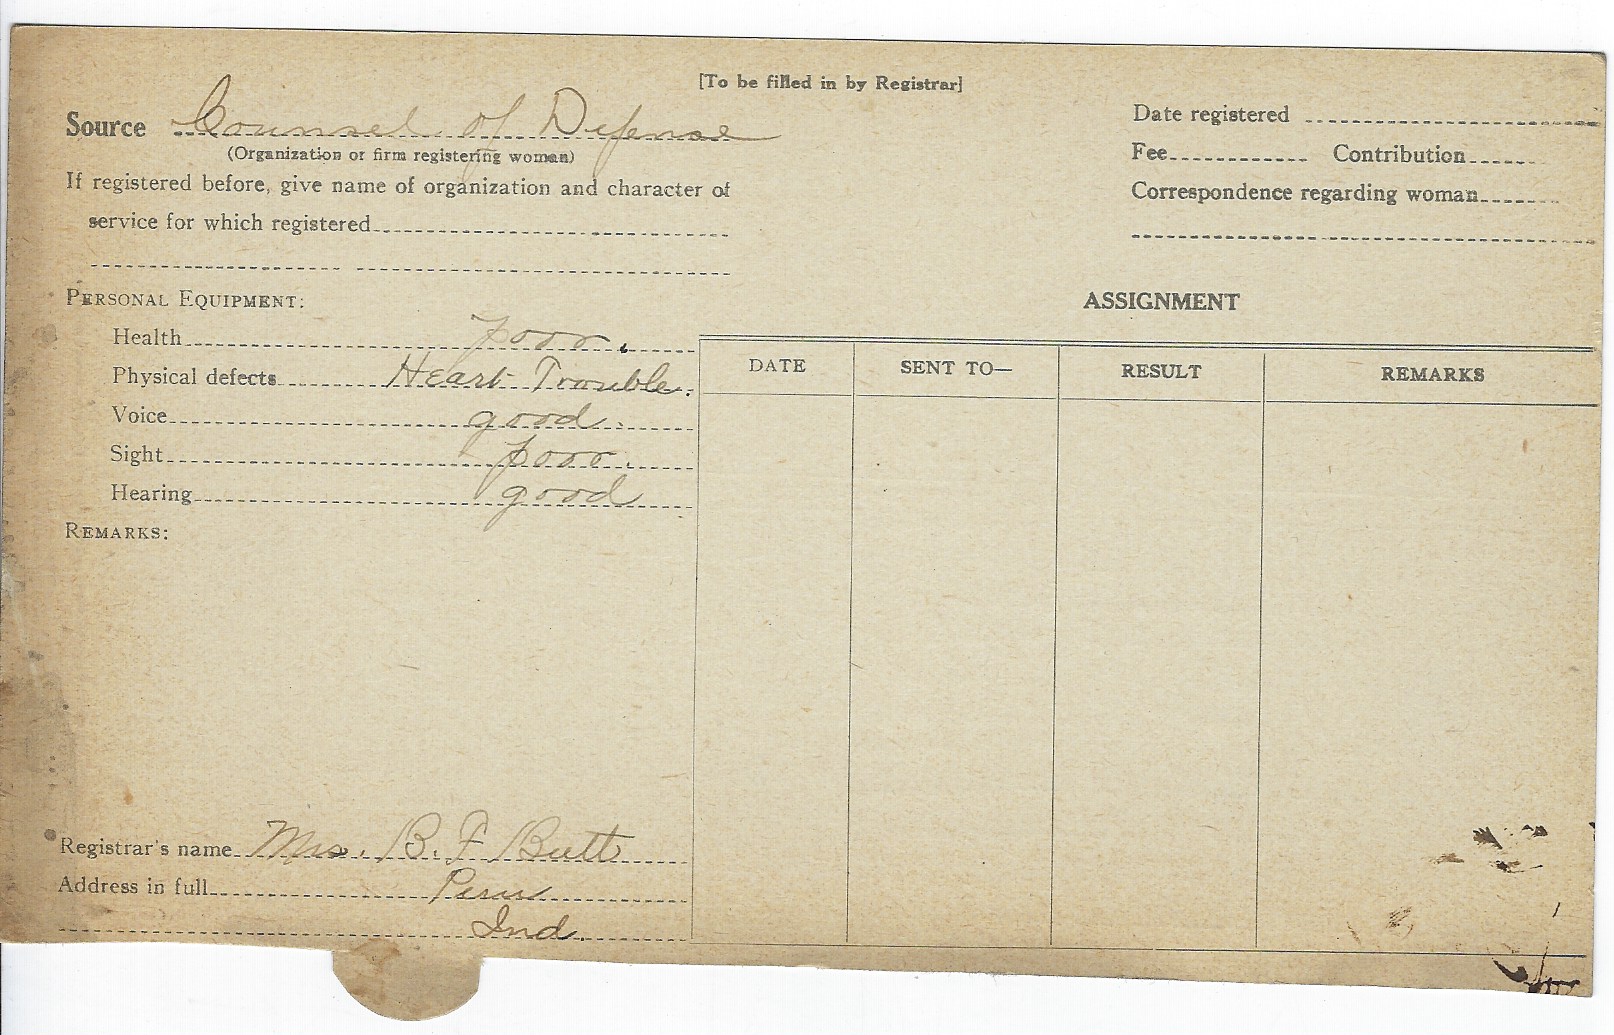 [To be filled in by Registrar]
Source Counsel of Defense
(Organization or firm registering woman)
If registered before, give name of organization and character of
service for which registered
Date registered
Fee Contribution
Correspondence regarding woman
PERSONAL EQUIPMENT:
Health poor.
Physical defects Heart Trouble.
Voice good.
Sight poor.
Hearing good
REMARKS:
ASSIGNMENT
DATE SENT TO— RESULT REMARKS
Registrar's name Mrs. B. F Butt
Address in full Peru
Ind.